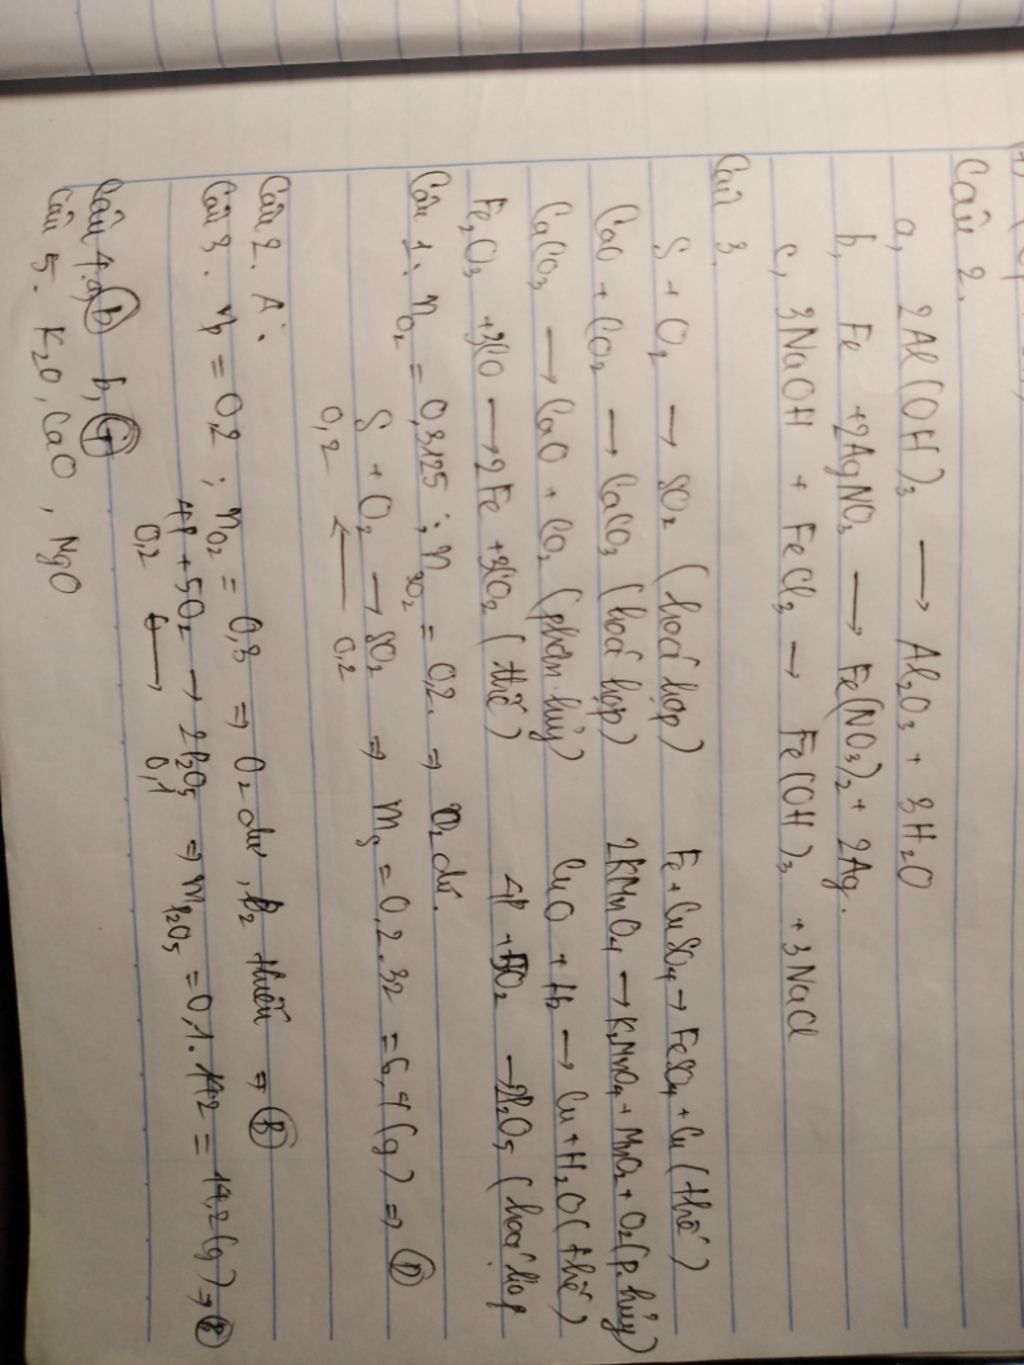 Câu 2.
a, 2Al(OH)3 → Al2O3 + 3H2O
b, Fe +2AgNO3 → Fe(NO3)2 + 2Ag.
c, 3NaOH + FeCl3 → Fe(OH)3 +3NaCl
Câu 3.
S + O2 → SO2 (hoá hợp) Fe + CuSO4 → FeSO4 + Cu (thế)
CaO + CO2 → CaCO3 (hoá hợp) 2KMnO4 → K2MnO4 + MnO2 + O2 (p.hủy)
CaCO3 → CaO + CO2 (phân hủy) CuO + H2 → Cu + H2O (thế)
Fe2O3 +3CO → 2Fe +3CO2 (thế) 4P +5O2 → 2P2O5 (hoá hợp
Câu 1. nO2 = 0,3125 ; nSO2 = 0,2. ⇒ O2 dư.
S + O2 → SO2 ⇒ mS = 0,2.32 = 6,4 (g) ⇒ D
0,2 ← 0,2
Câu 2. A.
Câu 3. nP = 0,2 ; nO2 = 0,3 ⇒ O2 dư, thiếu ⇒ B
4P + 5O2 → 2P2O5 ⇒ mP2O5 = 0,1.142 = 14,2 (g) ⇒ B
0,2 0,1
Câu 4. a, b b,
Câu 5. K2O, CaO, MgO